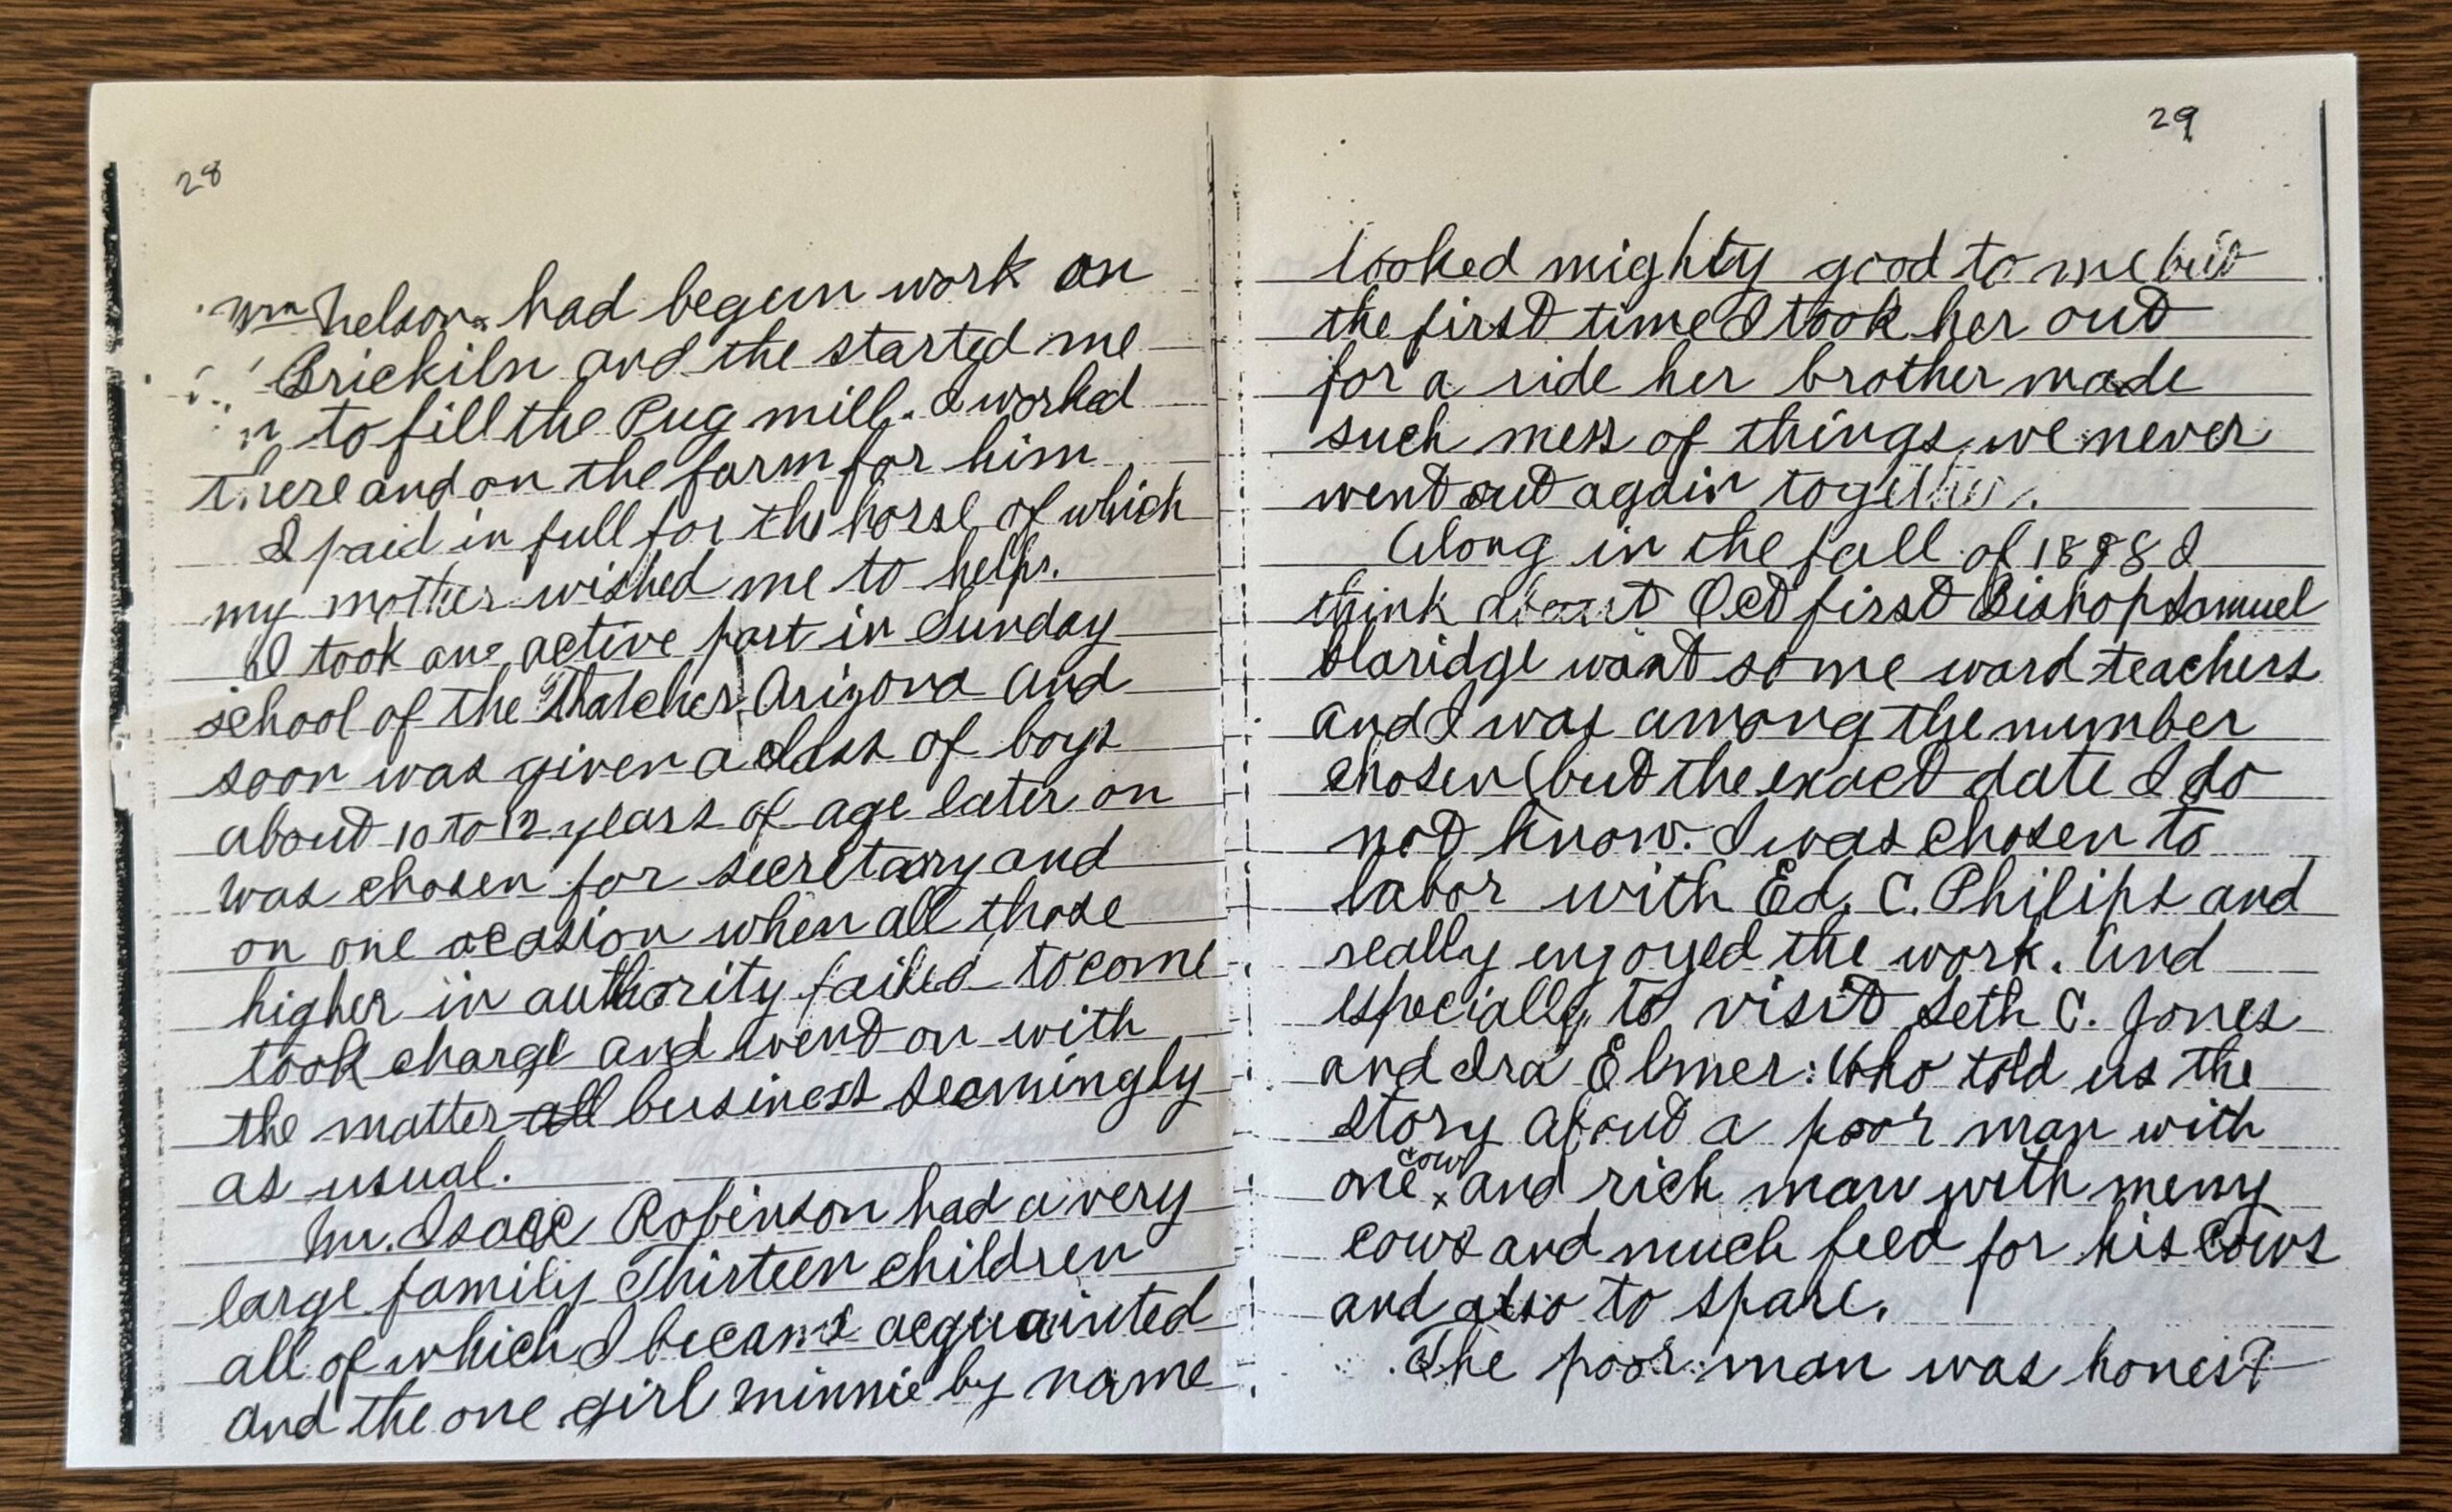 28
Wm Nelson had begun work on
Brickiln and the started me
to fill the Pug mill. I worked
there and on the farm for him
I paid in full for the horse of which
my mother wished me to help.
I took an active part in Sunday
school of the Thatcher, Arizona and
soon was given a class of boys
about 10 to 12 years of age later on
was chosen for secretary and
on one ocasion when all those
higher in authority failed to come
took charge and went on with
the matter all business seemingly
as usual.
Mr. Isaac Robinson had a very
large family Thirteen children
all of which I became acquainted
and the one girl Minnie by name
29
looked mighty good to me but
the first time I took her out
for a ride her brother made
such mess of things we never
went out again together.
Along in the fall of 1898 I
think about Oct first Bishop Samuel
Claridge want some ward teachers
and I was among the number
chosen (but the exact date I do
not know. I was chosen to
labor with Ed. C. Philips and
really enjoyed the work. And
especially to visit Seth C. Jones
and Ira Elmer: Who told us the
story about a poor man with
one cow and rich man with meny
cows and much feed for his cows
and also to spare.
The poor man was honest